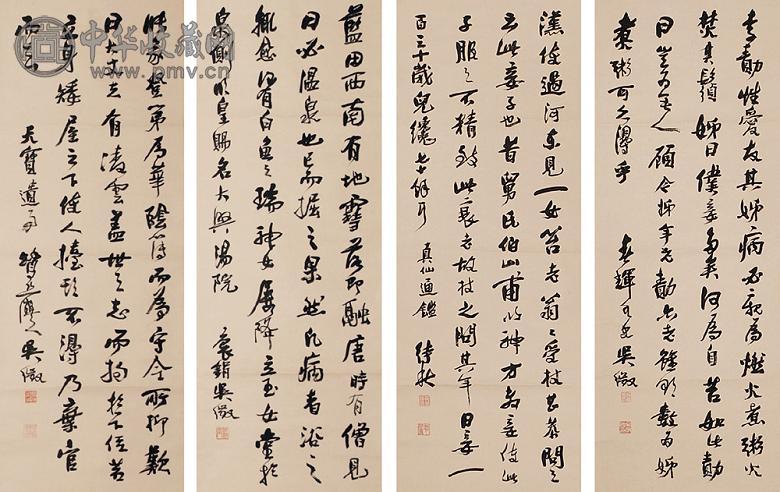 李勣性愛友其姊病必親為燃火煮粥火
焚其鬚姊曰僕妾多矣何為自苦如此勣
曰豈為無人顧今姊年老勣亦老雖欲數為姊
煮粥可久得乎 吳徵
漢使過河東見一女笞老翁〻受杖甚恭問之
云此妾子也昔舅氏伯山甫以神方教妾使此
子服之不精致此衰老故杖之問其年曰妾一
百三十歲兒纔七十餘耳 真仙通鑑 待秋
藍田西南有地雪落即融唐時有僧見
曰必溫泉也已而掘之果然凡病者浴之
輒愈有白魚之瑞神女屢降立玉女堂於
泉側明皇賜名大興湯院 袌鋗吳徵
張彖登第為華陰簿而為守令所抑歎
曰大丈夫有凌雲蓋世之志而拘於下位若
立身矮屋之下使人擡頭不得乃棄官
而去 天寶遺事 鷺鷥灣人吳徵
中华收藏网
www.pmv.cn